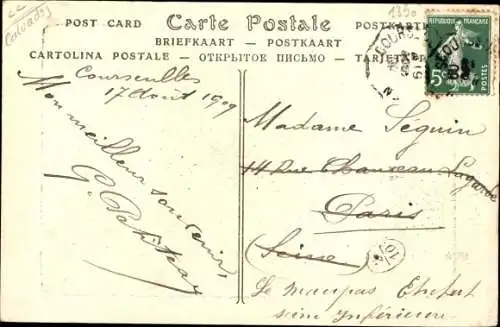 Calvados
1350
POST CARD Carte Postale POSTKARTE
BRIEFKAART — POSTKAART
CARTOLINA POSTALE — ОТКРЫТОЕ ПИСЬМО — TARJETA
RÉPUBLIQUE FRANÇAISE
5c
POSTES
Courseulles
17 Août 1909
Mon meilleur souvenir,
G.
Madame Séguin
14 Rue Chanveau Lagarde
Paris
(Seine)
Le maupas
seine inférieure